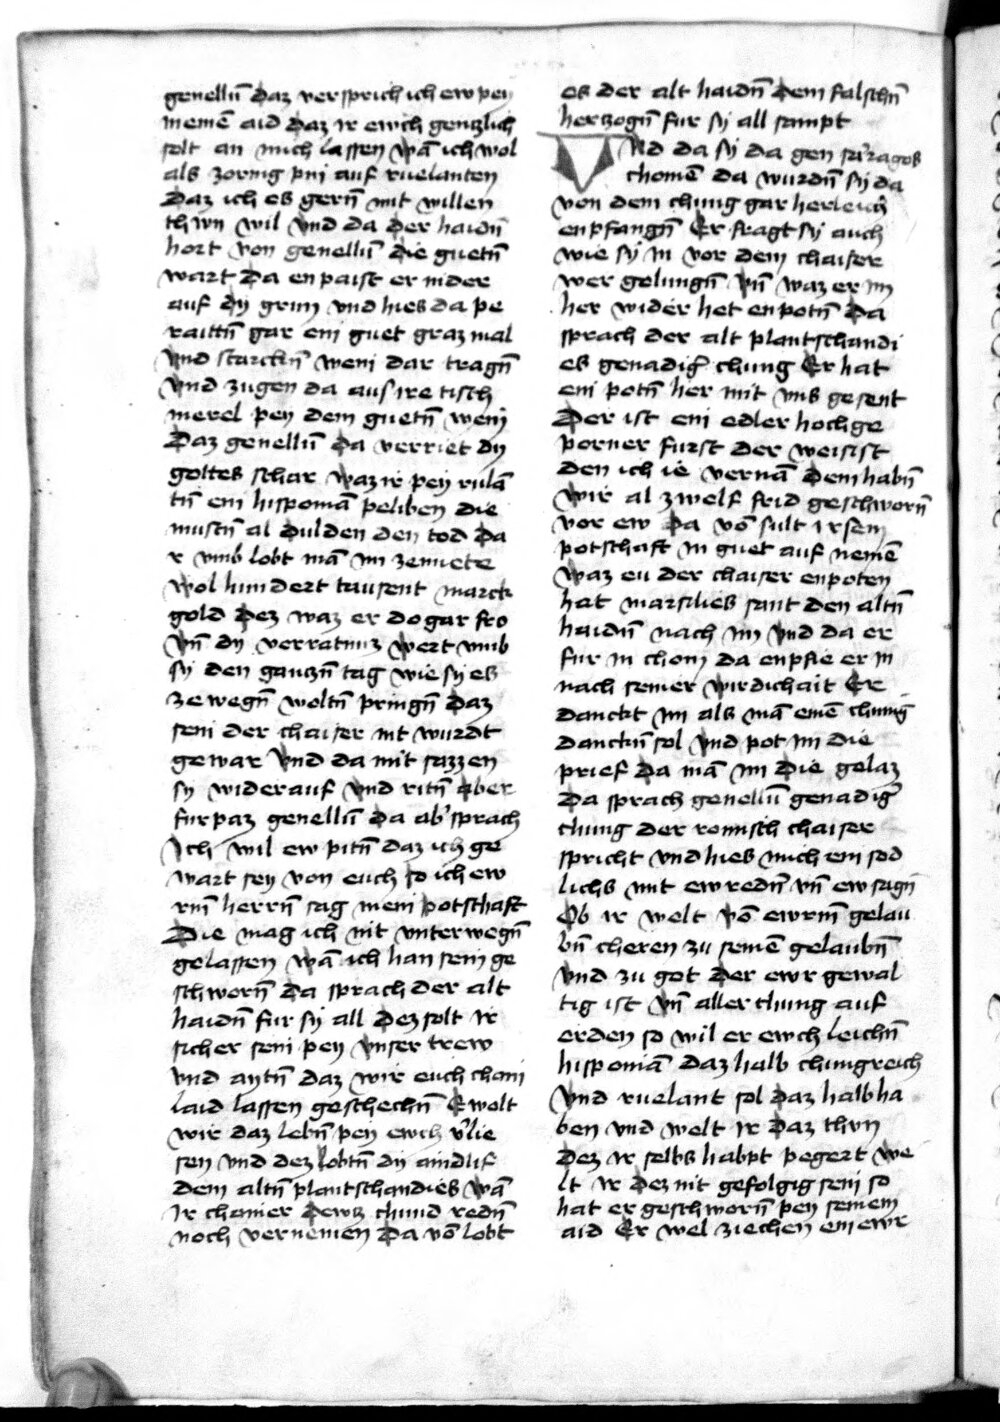 genellun̄ Daz versprich ich ew pey
meinē aid Daz ir ewch genczlich
solt an mich lassen Wā ich wol
als zornig pni auf ruelanten
Daz ich es gern̄ mit willen
thun wil Vnd da Der haidn̄
hort von genellun̄ Die guetn̄
wart Da enpaist er nider
auf dy grim vnd hies da pe
raittn̄ gar ein guet graz mal
Vnd starckn̄ wein dar tragn̄
Vnd zugen da aus ire tisch
merel pey dem guetn̄ wein
Daz genellun̄ Da verriet dy
gottes schar waz ir pey rulā
tn̄ em hispomā peliben die
mustn̄ al dulden den tod Da
r vmb lobt mā im ze miete
Wol hundert tausent marck
gold Dez waz er do gar fro
Vn̄ dy verratnuz wert vmb
sy den ganczn̄ tag wie sy es
ze wegn̄ woltn̄ pringn̄ Daz
sein der chaiser nit wurdt
gewar Vnd da mit sazzen
sy wider auf Vnd ritn̄ aber
furpaz genellun̄ Da ab' sprach
Ich wil ew pitn̄ daz ich ge
wart sey von euch so ich ew
rm̄ herrn̄ sag mein potschaft
Die mag ich nit vnterwegn̄
gelassen Wā ich han sein ge
schworn̄ Da sprach der alt
haidn̄ fur sy all Dez solt ir
sicher sein pey Vnser trew
Vnd aytn̄ daz wir euch chain
laid lassen geschechn̄ E wolt
wir daz lebn̄ pey ewch v'lie
sen Vnd dez lobtn̄ dy aindlif
dem altn̄ plantschandies Wā
Ir chainer Dewcz chund redn̄
noch vernemen Da vō lobt
es der alt haidn̄ Dem falschn̄
herzogn̄ fur sy all sampt
VNd da sy da gen sa'ragos
chomē da wurdn̄ sy da
von dem chung gar herleich
enpfangn̄ Er fragt sy auch
wie sy in vor dem chaiser
wer gelungn̄ Vn̄ waz er im
her wider het enpotn̄ Da
sprach der alt plantschandi
es genadig' chung Er hat
ein potn̄ her mit vns gesent
Der ist ein edler hochge
porner furst der weisist
den ich ie vernā Dem habn̄
wir al zwelf frid geschworn̄
vor ew Da vō sult ir sein
potschaft in guet auf nemē
Waz eu der chaiser enpoten
hat marsilies sant den altn̄
haidn̄ nach im Vnd da er
fur in chom da enpfie er in
nach seiner wirdichait Er
danckt im als mā einē chung
danckn̄ sol Vnd pot im die
prief Da mā im Die gelaz
Da sprach genellun̄ genadig'
chung der romisch chaiser
spricht Vnd hies mich ein sod
lichs mit ew redn̄ Vn̄ ew sagn̄
Ob ir welt vō ewrm̄ gelau
bn̄ cheren zu seinē gelaubn̄
Vnd zu got Der ewr gewal
tig ist Vn̄ aller chung auf
erden so wil er ewch leichn̄
hisponiā daz halb chungreich
Vnd ruelant sol Daz halb ha
ben vnd welt ir Daz thun
Dez ir selbs habpt pegert We
lt ir Dez nit gefolgig sein so
hat er geschworn̄ pey seinem
aid Er wel ziechen ein ewr